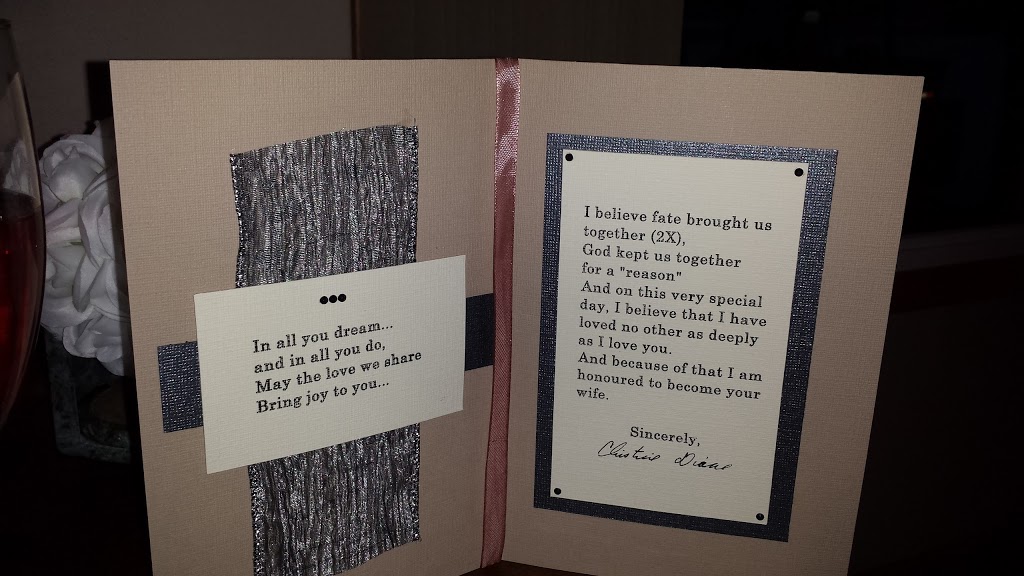 In all you dream...
and in all you do,
May the love we share
Bring joy to you...
I believe fate brought us
together (2X),
God kept us together
for a "reason"
And on this very special
day, I believe that I have
loved no other as deeply
as I love you.
And because of that I am
honoured to become your
wife.
Sincerely,
Christine Diane